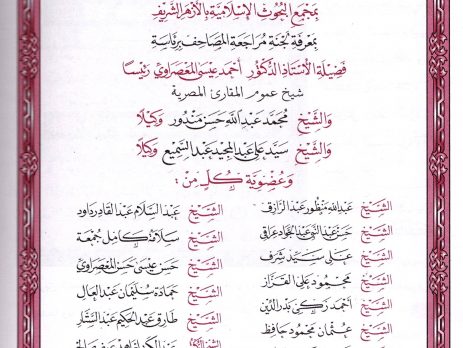 بمجمع البحوث الإسلامية بالأزهر الشريف
بمعرفة لجنة مراجعة المصاحف برئاسة
فضيلة الأستاذ الدكتور أحمد عيسى المعصراوي رئيسا
شيخ عموم المقارئ المصرية
والشيخ محمد عبد الله حسن مندور وكيلا
والشيخ سيد علي عبد المجيد عبد السميع وكيلا
وعضوية كل من:
الشيخ عبد الله منظور عبد الرازق الشيخ عبد السلام عبد القادر داود
الشيخ حسن عبد النبي عبد الجواد عراقي الشيخ سلامة كامل جمعة
الشيخ علي سيد شرف الشيخ حسن عيسى حسن المعصراوي
الشيخ محمود علي القزاز الشيخ حمادة سليمان عبد العال
الشيخ أحمد زكي بدر الدين الشيخ طارق عبد الحكيم عبد الستار
الشيخ عثمان محمود حافظ